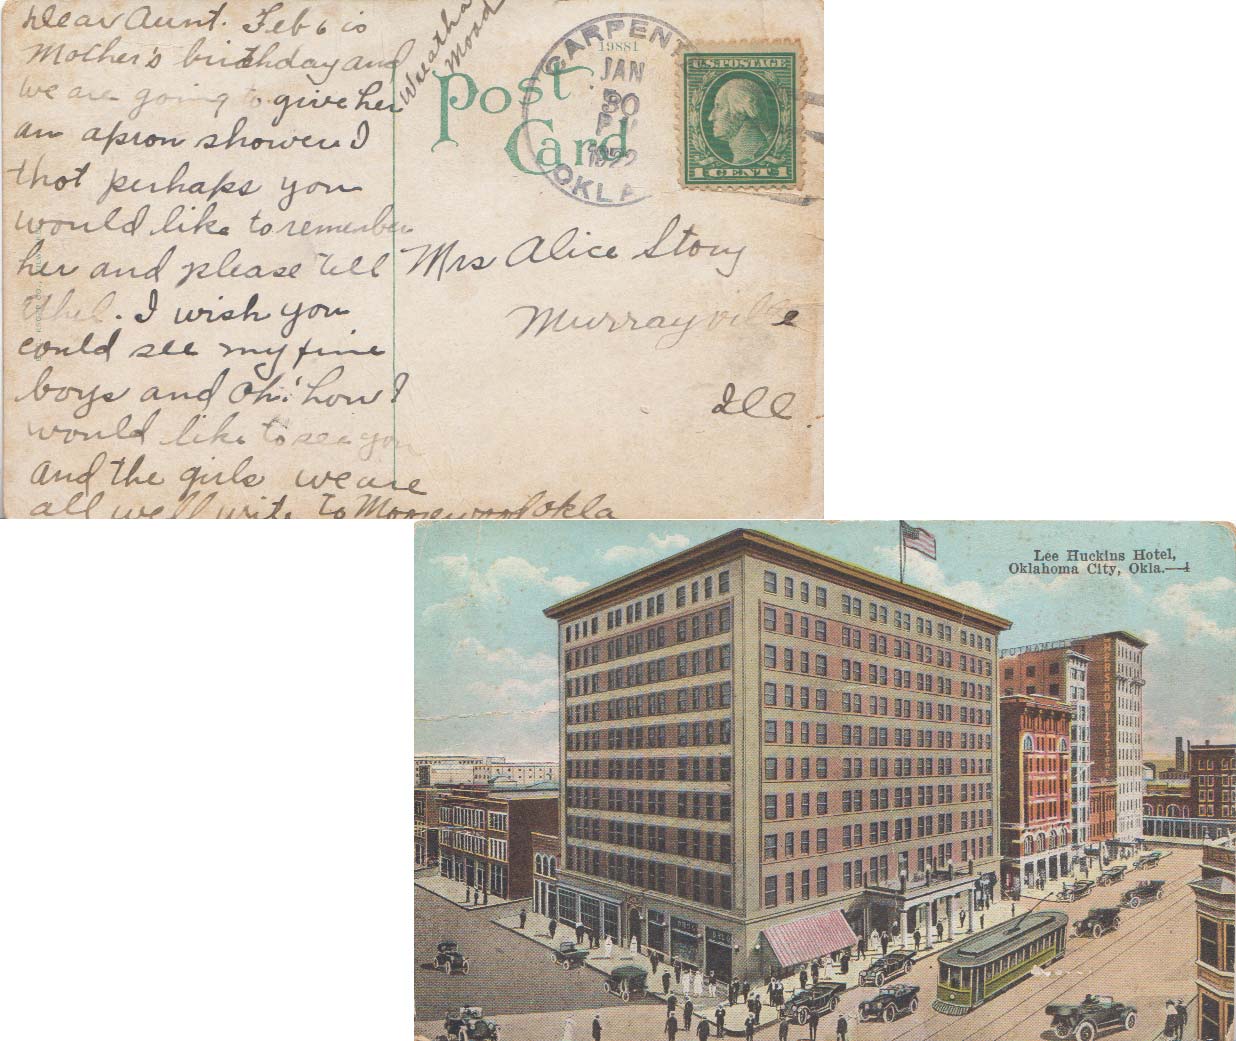 Dear Aunt. Feb 6 is
Mother's birthday and
we are going to give her
an apron shower I
that perhaps you
would like to remember
her and please tell
Ethel. I wish you
could see my fine
boys and Oh! how I
would like to see you
and the girls we are
all well write to Okla
Wreatha
Mood
Post
Card
19881
CARPENT
JAN
30
P
1922
OKLA
U.S. POSTAGE
1 CENT 1
Mrs Alice Story
Murrayville
Ill.
Lee Huckins Hotel,
Oklahoma City, Okla.—4
PUTNAM CO